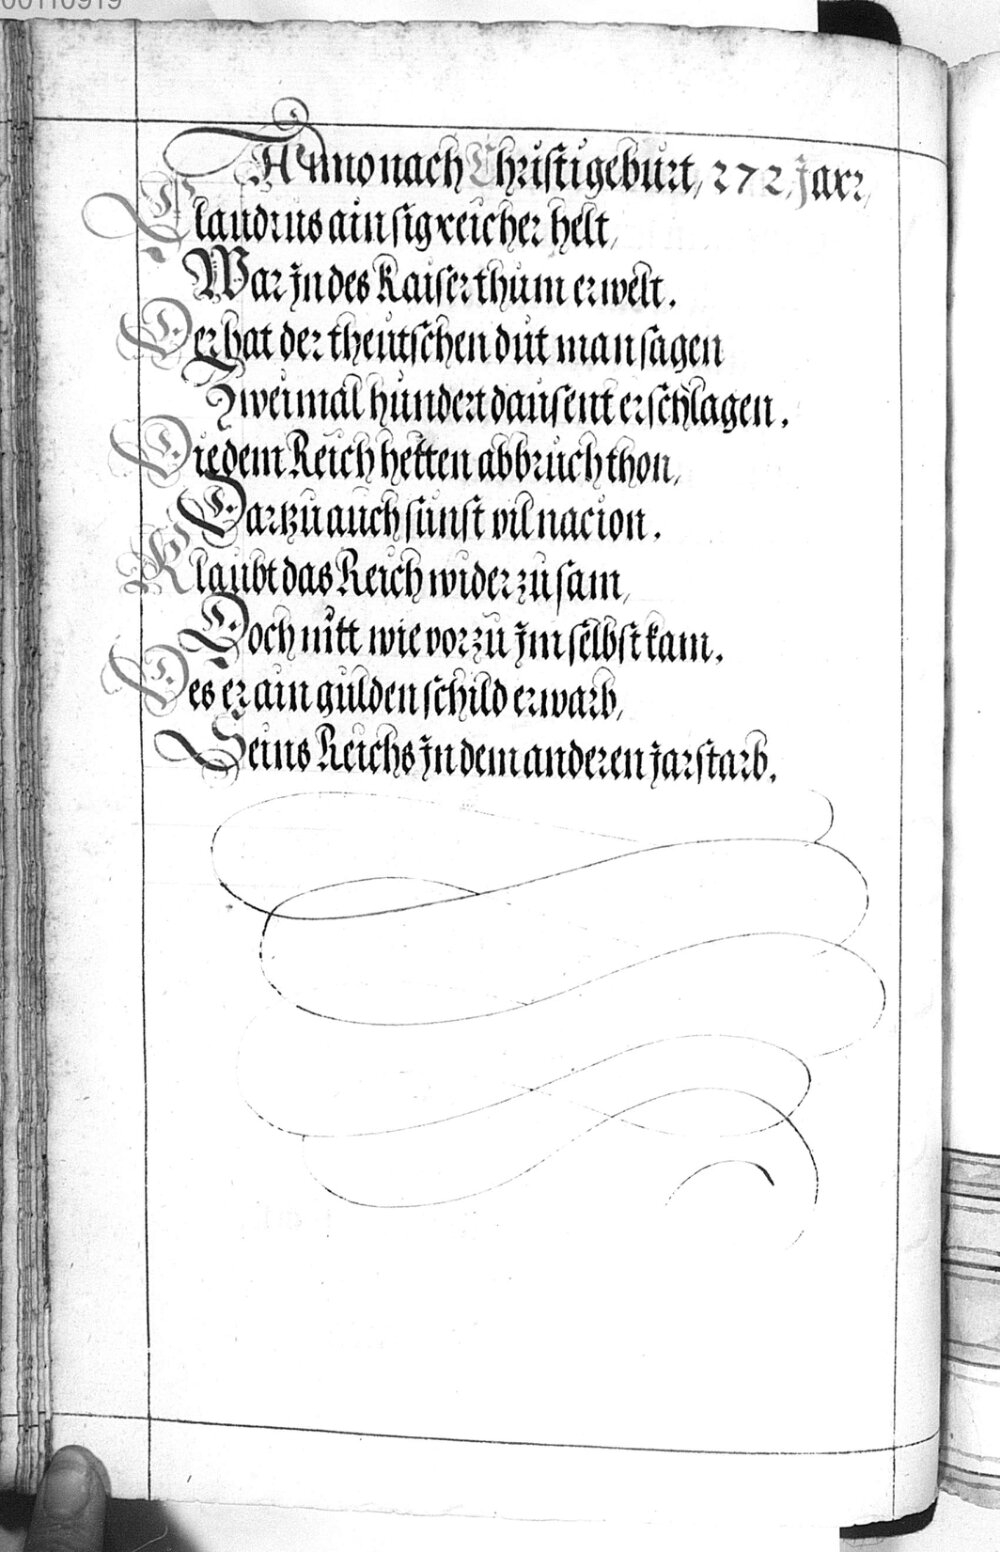 00110919
Anno nach Christi gebürt, 272, Jarr,
Claudius ain sigreicher helt,
War Jn des Kaiserthum erwelt.
Der hat der theütschen düt man sagen
Zweimal hündert daüsent erschlagen.
Die dem Reich hetten abbrüch thon,
Dartzü aüch sünst vil nacion.
Klaübt das Reich wider zü sam,
Doch nitt wie vor zü Jm selbst kam.
Des er ain gülden schild erwarb,
Seins Reichs Jn dem anderen jar starb.